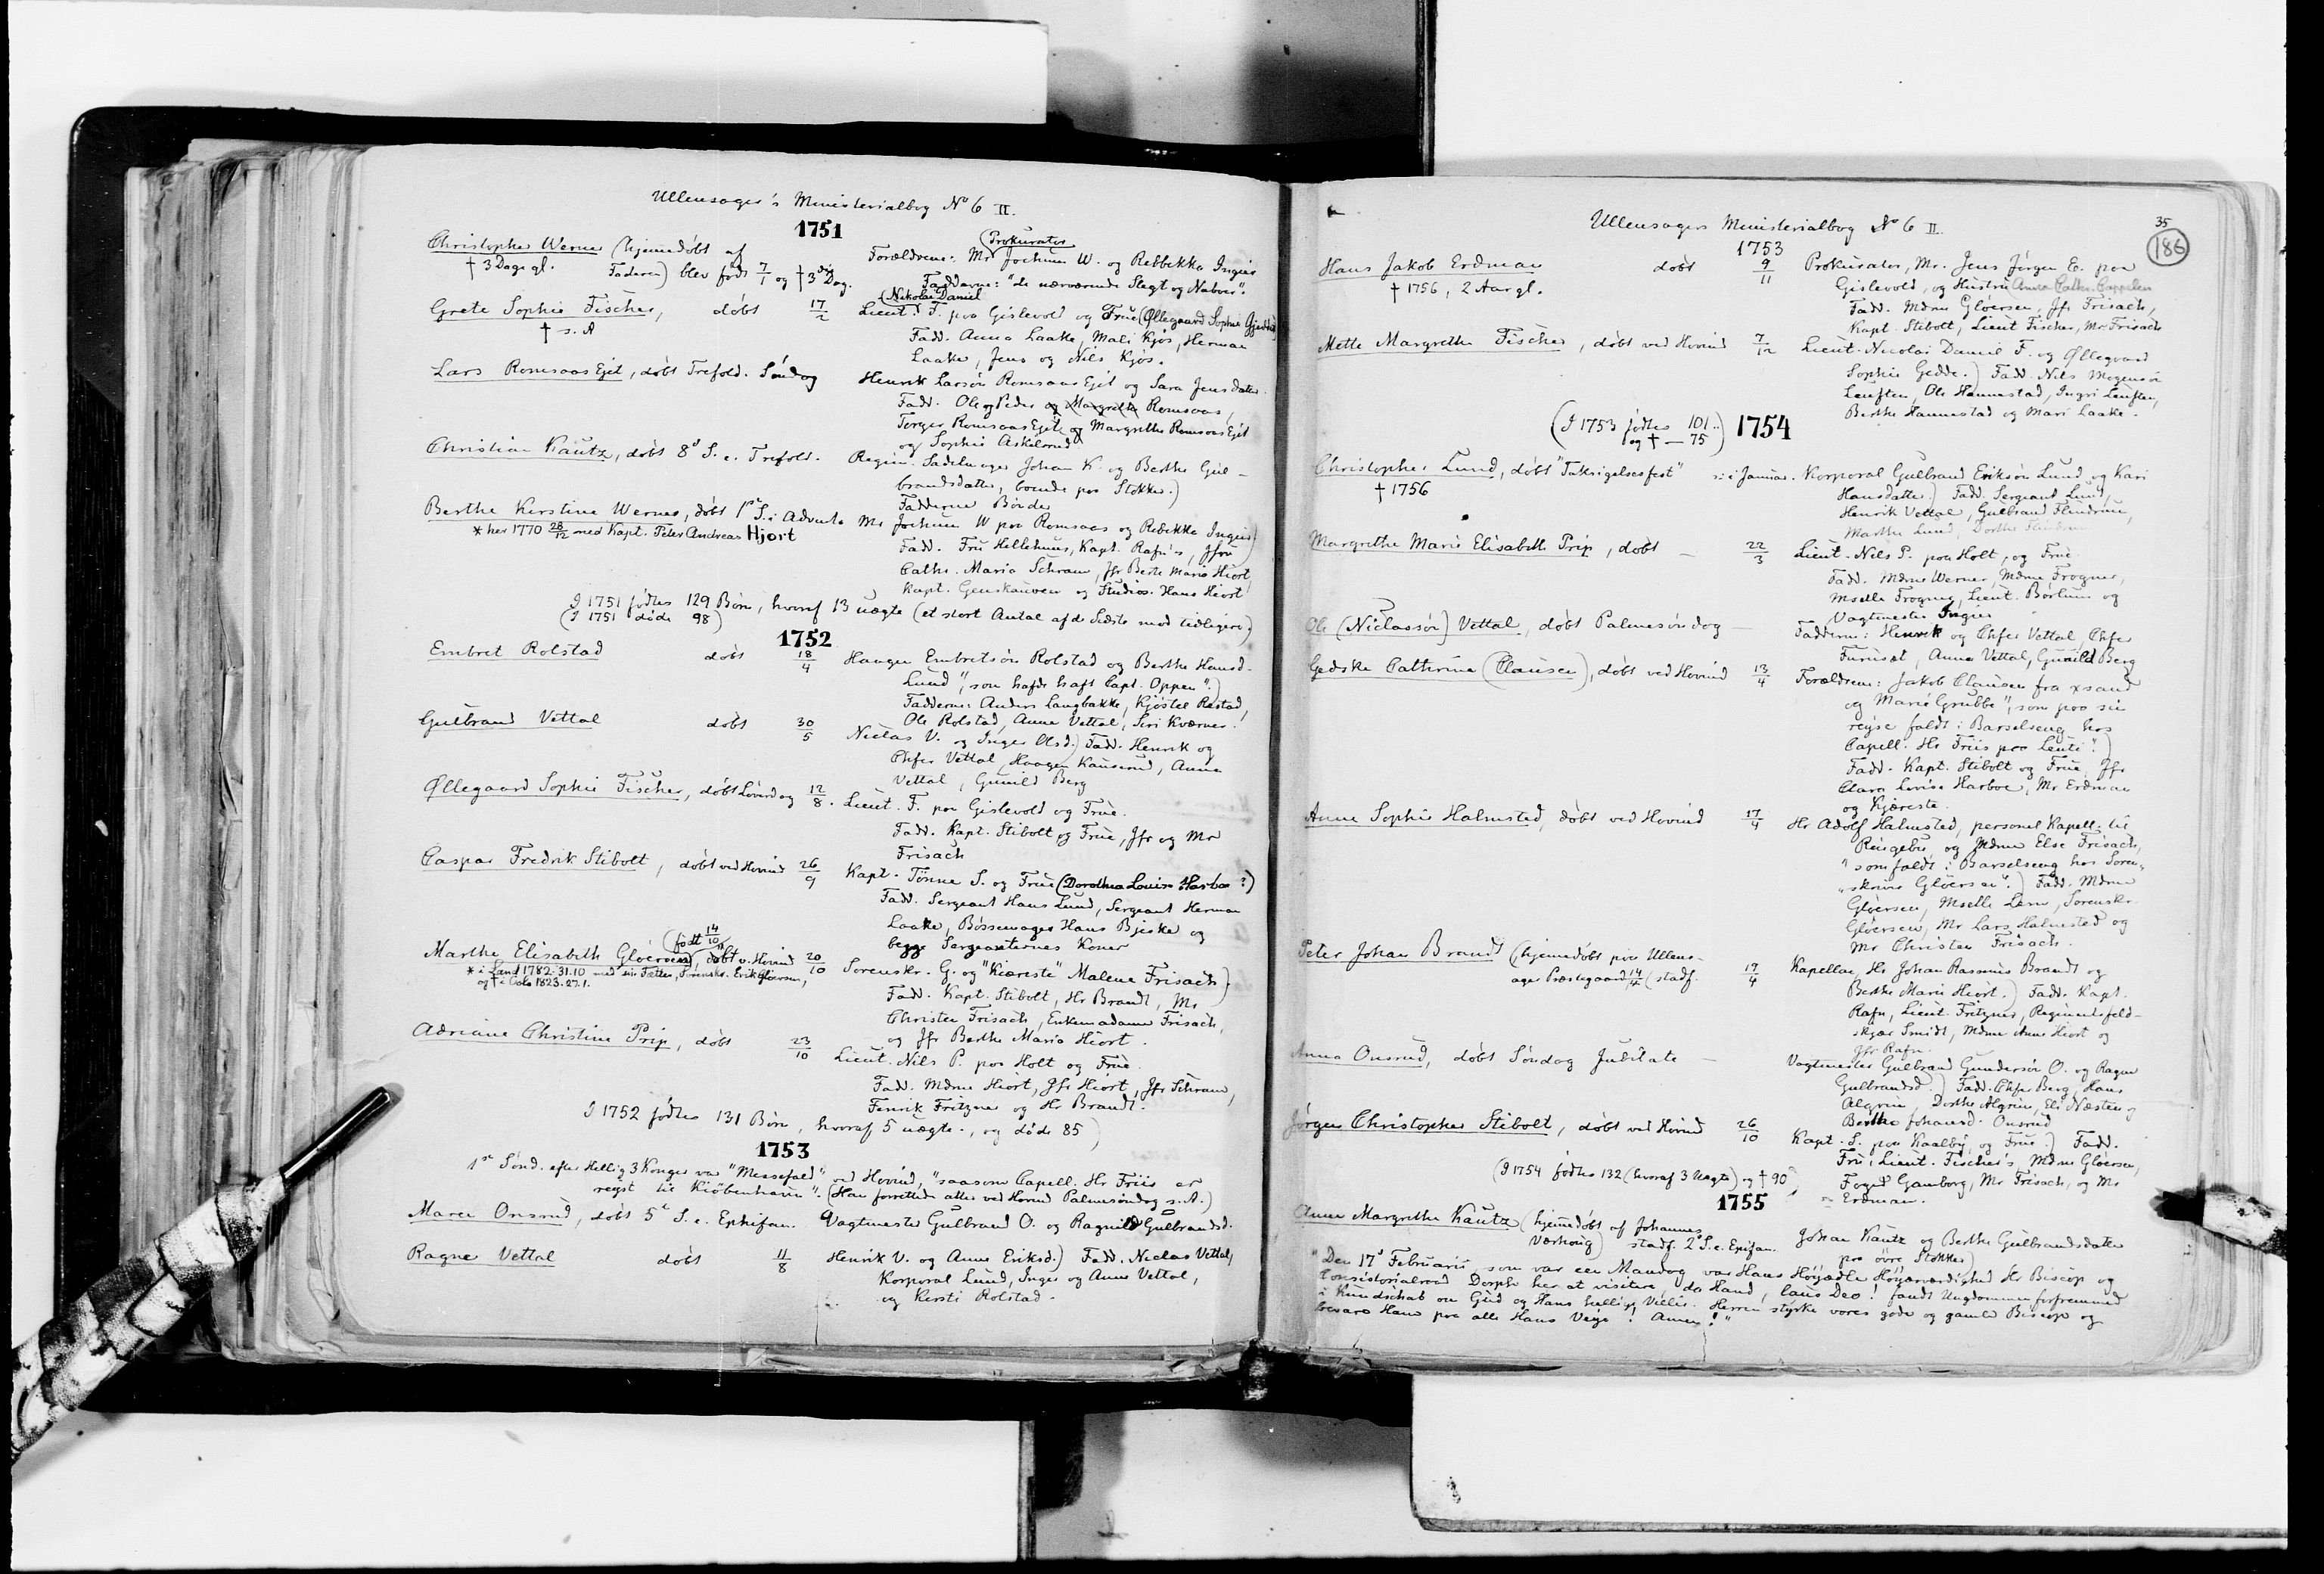 Ullensager's Ministerialbog No 6 II.
1751
Christopher Werner (hjemmedöbt af
Faderen) blev födt 7/1 og † 3die Dag.
† 3 Dage gl.
Forældrene: Mr (Prokurator) Jochum W. og Rebbekka Ingier
Fadderne: "de nærværende Slegt og Naboer".
Grete Sophie Fischer, döbt 17/2
† s. A
(Nikolai Daniel
Lieut. F. paa Gislevold og Frue (Øllegaard Sophie Gjedde)
Fadd. Anna Laake, Mali Kjos, Herman
Laake, Jens og Nils Kjos.
Lars Romsaas Ejet, döbt Trefold. Söndag
Henrik Larsön Romsaas Ejet og Sara Jensdatter.
Fadd. Ole og Peder og Margrethe Romsaas,
Torger Romsaas Ejet og Margrethe Romsaas Ejet
og Sophie Askelsrud
Christian Kautz, döbt 8d S. e. Trefold.
Regim. Sadelmager Johan K. og Berthe Gul-
brandsdatter, boende paa Stokker.)
Fadderne Bönder
Berthe Kirstine Werner, döbt 1ste S. i Advents
* her 1770 28/12 med Kapt. Peter Andreas Hjort
Mr Jochum W paa Romsaas og Rebekka Ingier)
Fadd. Fru Hellehuus, Kapt. Rafn's, Jfru
Cathr. Maria Schram, Jfr Berte Maria Hiort,
Kapt. Genskauwen og Studios. Hans Hiort
I 1751 födtes 129 Börn, hvoraf 13 uægte (et stort Antal af de Sidste mod tidligere)
(I 1751 döde 98)
1752
Embret Rolstad döbt 18/4
Haagen Embretsön Rolstad og Berthe Hansd.
Lund", som hafde haft Capt. Oppen".)
Fadderne: Anders Langbakke, Kjöstel Rastad,
Ole Rolstad, Anne Vettal, Siri Kværner.
Gulbrand Vettal döbt 30/5
Niclas V. og Inger Olsd.) Fadd. Henrik og
Chfer Vettal, Haagen Kauserud, Anna
Vettal, Gunild Berg
Øllegaard Sophie Fischer, döbt Löverdag 12/8.
Lieut. F. paa Gislevold og Frue.
Fadd. Kapt. Stibolt og Frue, Jfr og Mr
Frisach
Caspar Fredrik Stibolt, döbt ved Hovind 26/9
Kapt. Tönne S. og Frue (Dorothea Louise Harboe?)
Fadd. Sergeant Hans Lund, Sergeant Herman
Laake, Bössemager Hans Bjerke og
begge Sergeanternes Koner
(födt 14/10)
Marthe Elisabeth Glöersen, döbt v. Hovind 20/10
* i Land 1782.31.10 med sin Fætter, Sorenskr. Erik Glöersen,
og † i Oslo 1823.27.1.
Sorenskr. G. og "Kiæreste" Malene Frisach)
Fadd. Kapt. Stibolt, Hr Brandt, Mr
Christen Frisach, Enkemadame Frisach,
og Jfr Berthe Maria Hiort.
Adriane Christine Prip, döbt 23/10
Lieut. Nils P. paa Holt og Frue.
Fadd. Mdme Hiort, Jfr Hiort, Jfr Schram,
Fenrik Fritzner og Hr Brandt.
I 1752 födtes 131 Börn, hvoraf 5 uægte., og döde 85)
1753
1ste Sönd. efter Hellig 3 Konger var "Messefald" ved Hovind, "saasom Capell. Hr Friis er
reyst til Kiöbenhavn". (Han forrettede atter ved Hovind Palmesöndag s. A.)
Maren Onsrud, döbt 5te S. e. Ephifan.
Vagtmester Gulbrand O. og Ragnild Gulbrandsd.
Ragne Vettal döbt 11/8
Henrik V. og Anne Eriksd.) Fadd. Niclas Vettal,
Korporal Lund, Inger og Anne Vettal,
og Kersti Rolstad.
35
186
Ullensagers Ministerialbog No 6 II.
1753
Hans Jakob Erdman döbt 9/11
† 1756, 2 Aar gl.
Prokurator, Mr. Jens Jörgen E. paa
Gislevold, og Hustru Anna Cathr. Cappelen
Fadd. Mdme Glöersen, Jfr Frisach,
Kapt. Stibolt, Lieut Fischer, Mr Frisach
Mette Margrethe Fischer, döbt ved Hovind 7/12
Lieut. Nicolai Daniel F. og Øllegaard
Sophie Gedde.) Fadd. Nils Mogensön
Leuften, Ole Hannestad, Ingri Leuften,
Berthe Hannestad og Mari Laake.
(I 1753 födtes 101..
og † — 75)
1754
Christopher Lund, döbt "Taksigelsesfest" ɔ: i Januar.
† 1756
Korporal Gulbrand Eriksön Lund og Kari
Hansdatter.) Fadd. Sergeant Lund,
Henrik Vettal, Gulbrand Flendrum,
Marthe Lund, Dorthe Flendrum
Margrethe Marie Elisabeth Prip, döbt — 22/3
Lieut. Nils P. paa Holt, og Frue.
Fadd. Mdme Werner, Mdme Frogner,
Mselle Frogner, Lieut. Borlum og
Vagtmester Ingier
Ole (Niclassön) Vettal, döbt Palmesöndag —
Fadderne: Henrik og Chfer Vettal, Chfer
Furuset, Anna Vettal, Gunild Berg
Gedske Cathrine (Clausen), döbt ved Hovind 13/4
Forældrene: Jakob Clausen fra Xsand
og Marie Grubbe", som paa sin
reyse faldt i Barselseng hos
Capell. Hr Friis paa Leuti".)
Fadd. Kapt. Stibolt og Frue, Jfr
Clara Lovise Harboe, Mr Erdman
og Kjæreste.
Anne Sophie Halmsted, döbt ved Hovind 17/4
Hr Adolf Halmsted, personel Kapell. til
Ringebu og Mdme Else Frisach,
"som faldt i Barselseng hos Soren-
"skriver Glöersen".) Fadd. Mdme
Glöersen, Mselle Lem, Sorenskr.
Glöersen, Mr Lars Halmsted og
Mr Christen Frisach.
Peter Johan Brandt (hjemmedöbt paa Ullens-
ager Præstegaard 14/4 (stadf. 19/4
Kapellan, Hr Johan Rasmus Brandt og
Berthe Marie Hiort.) Fadd. Kapt.
Rafn, Lieut. Fritzner, Regimentsfeld-
skjær Smidt, Mdme Anne Hiort og
Jfr Rafn.
Anna Onsrud, döbt Söndag Jubilate —
Vagtmester Gulbrand Gundersön O. og Ragne
Gulbrandsd.) Fadd. Chfer Berg, Hans
Algrim, Dorthe Algrim, Eli Næsten og
Berthe Johansd. Onsrud
Jörgen Christopher Stibolt, döbt ved Hovind 26/10
Kapt. S. paa Kaalby, og Frue.) Fadd.
Fru Lieut. Fischer's, Mdme Glöersen,
Foged Gamborg, Mr Frisach, og Mr
Erdman.
(I 1754 födtes 132 (hvoraf 3 Uægte) og † 90)
1755
Anne Margrethe Kautz (hjemmedöbt af Johannes
Værhoug) stadf. 2d S. e. Epifan.
Johan Kautz og Berthe Gulbrandsdatter
paa övre Stokker)
"Den 17d Februarii, som var een Mandag var Hans Höyædle Höyærværdighed Hr Biscop og
Consistorialraad Dorph her at visitere, da Hand, laus Deo! fandt Ungdommen forfremmed
i Kundschab om Gud og Hans hellige Villie. Herren styrke vores gode og gamle Biscop og
bevare Ham paa alle Hans Veye! Amen!"